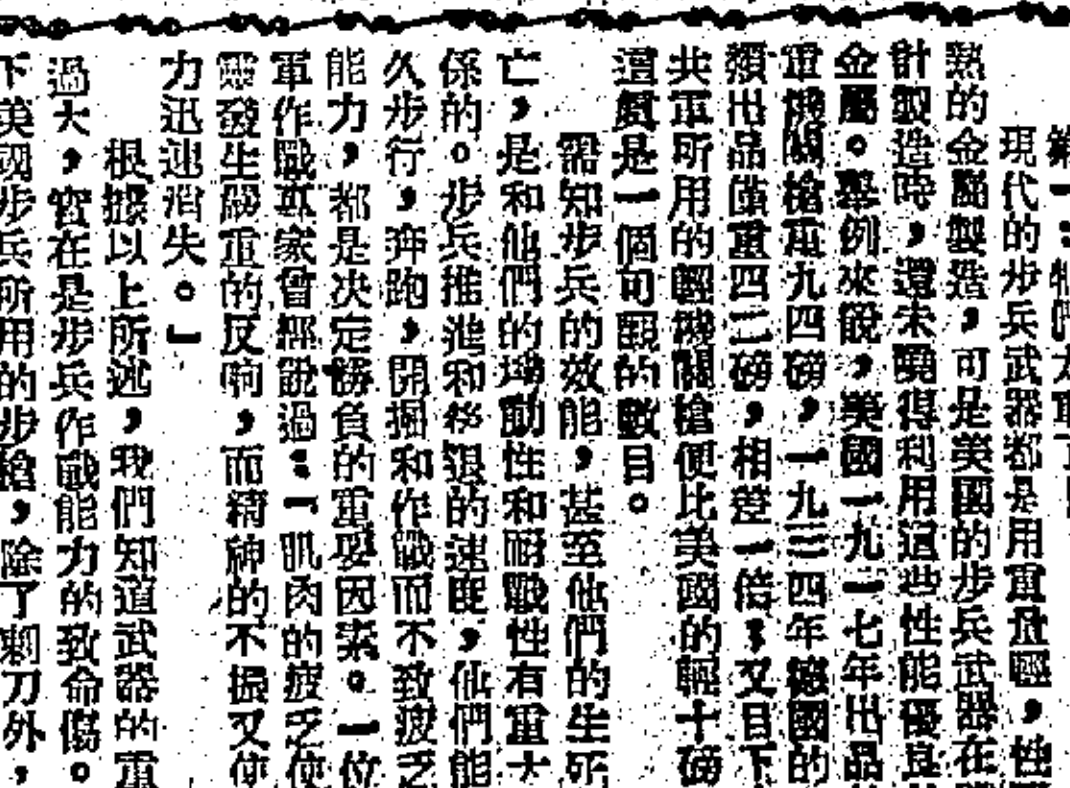 第一：牠們太重了
現代的步兵武器都是用重量輕，性
熱的金屬製造，可是美國的步兵武器在
計製造時，還未曉得利用這些性能優良
金屬。舉例來說，美國一九一七年出品
重機關槍重九四磅，一九三四年德國的
類出品僅重四二磅，相差一倍；又目下
共軍所用的輕機關槍便比美國的輕十磅
這眞是一個可觀的數目。
需知步兵的效能，甚至他們的生死
亡，是和他們的機動性和耐戰性有重大
係的。步兵推進和移退的速度，他們能
久步行，奔跑，開掘和作戰而不致疲乏
能力，都是决定勝負的重要因素。一位
軍作戰專家曾經說過：「肌肉的疲乏使
靈發生嚴重的反响，而精神的不振又使
力迅速消失。」
根據以上所述，我們知道武器的重
過大，實在是步兵作戰能力的致命傷。
下美國步兵所用的步槍，除了刺刀外，